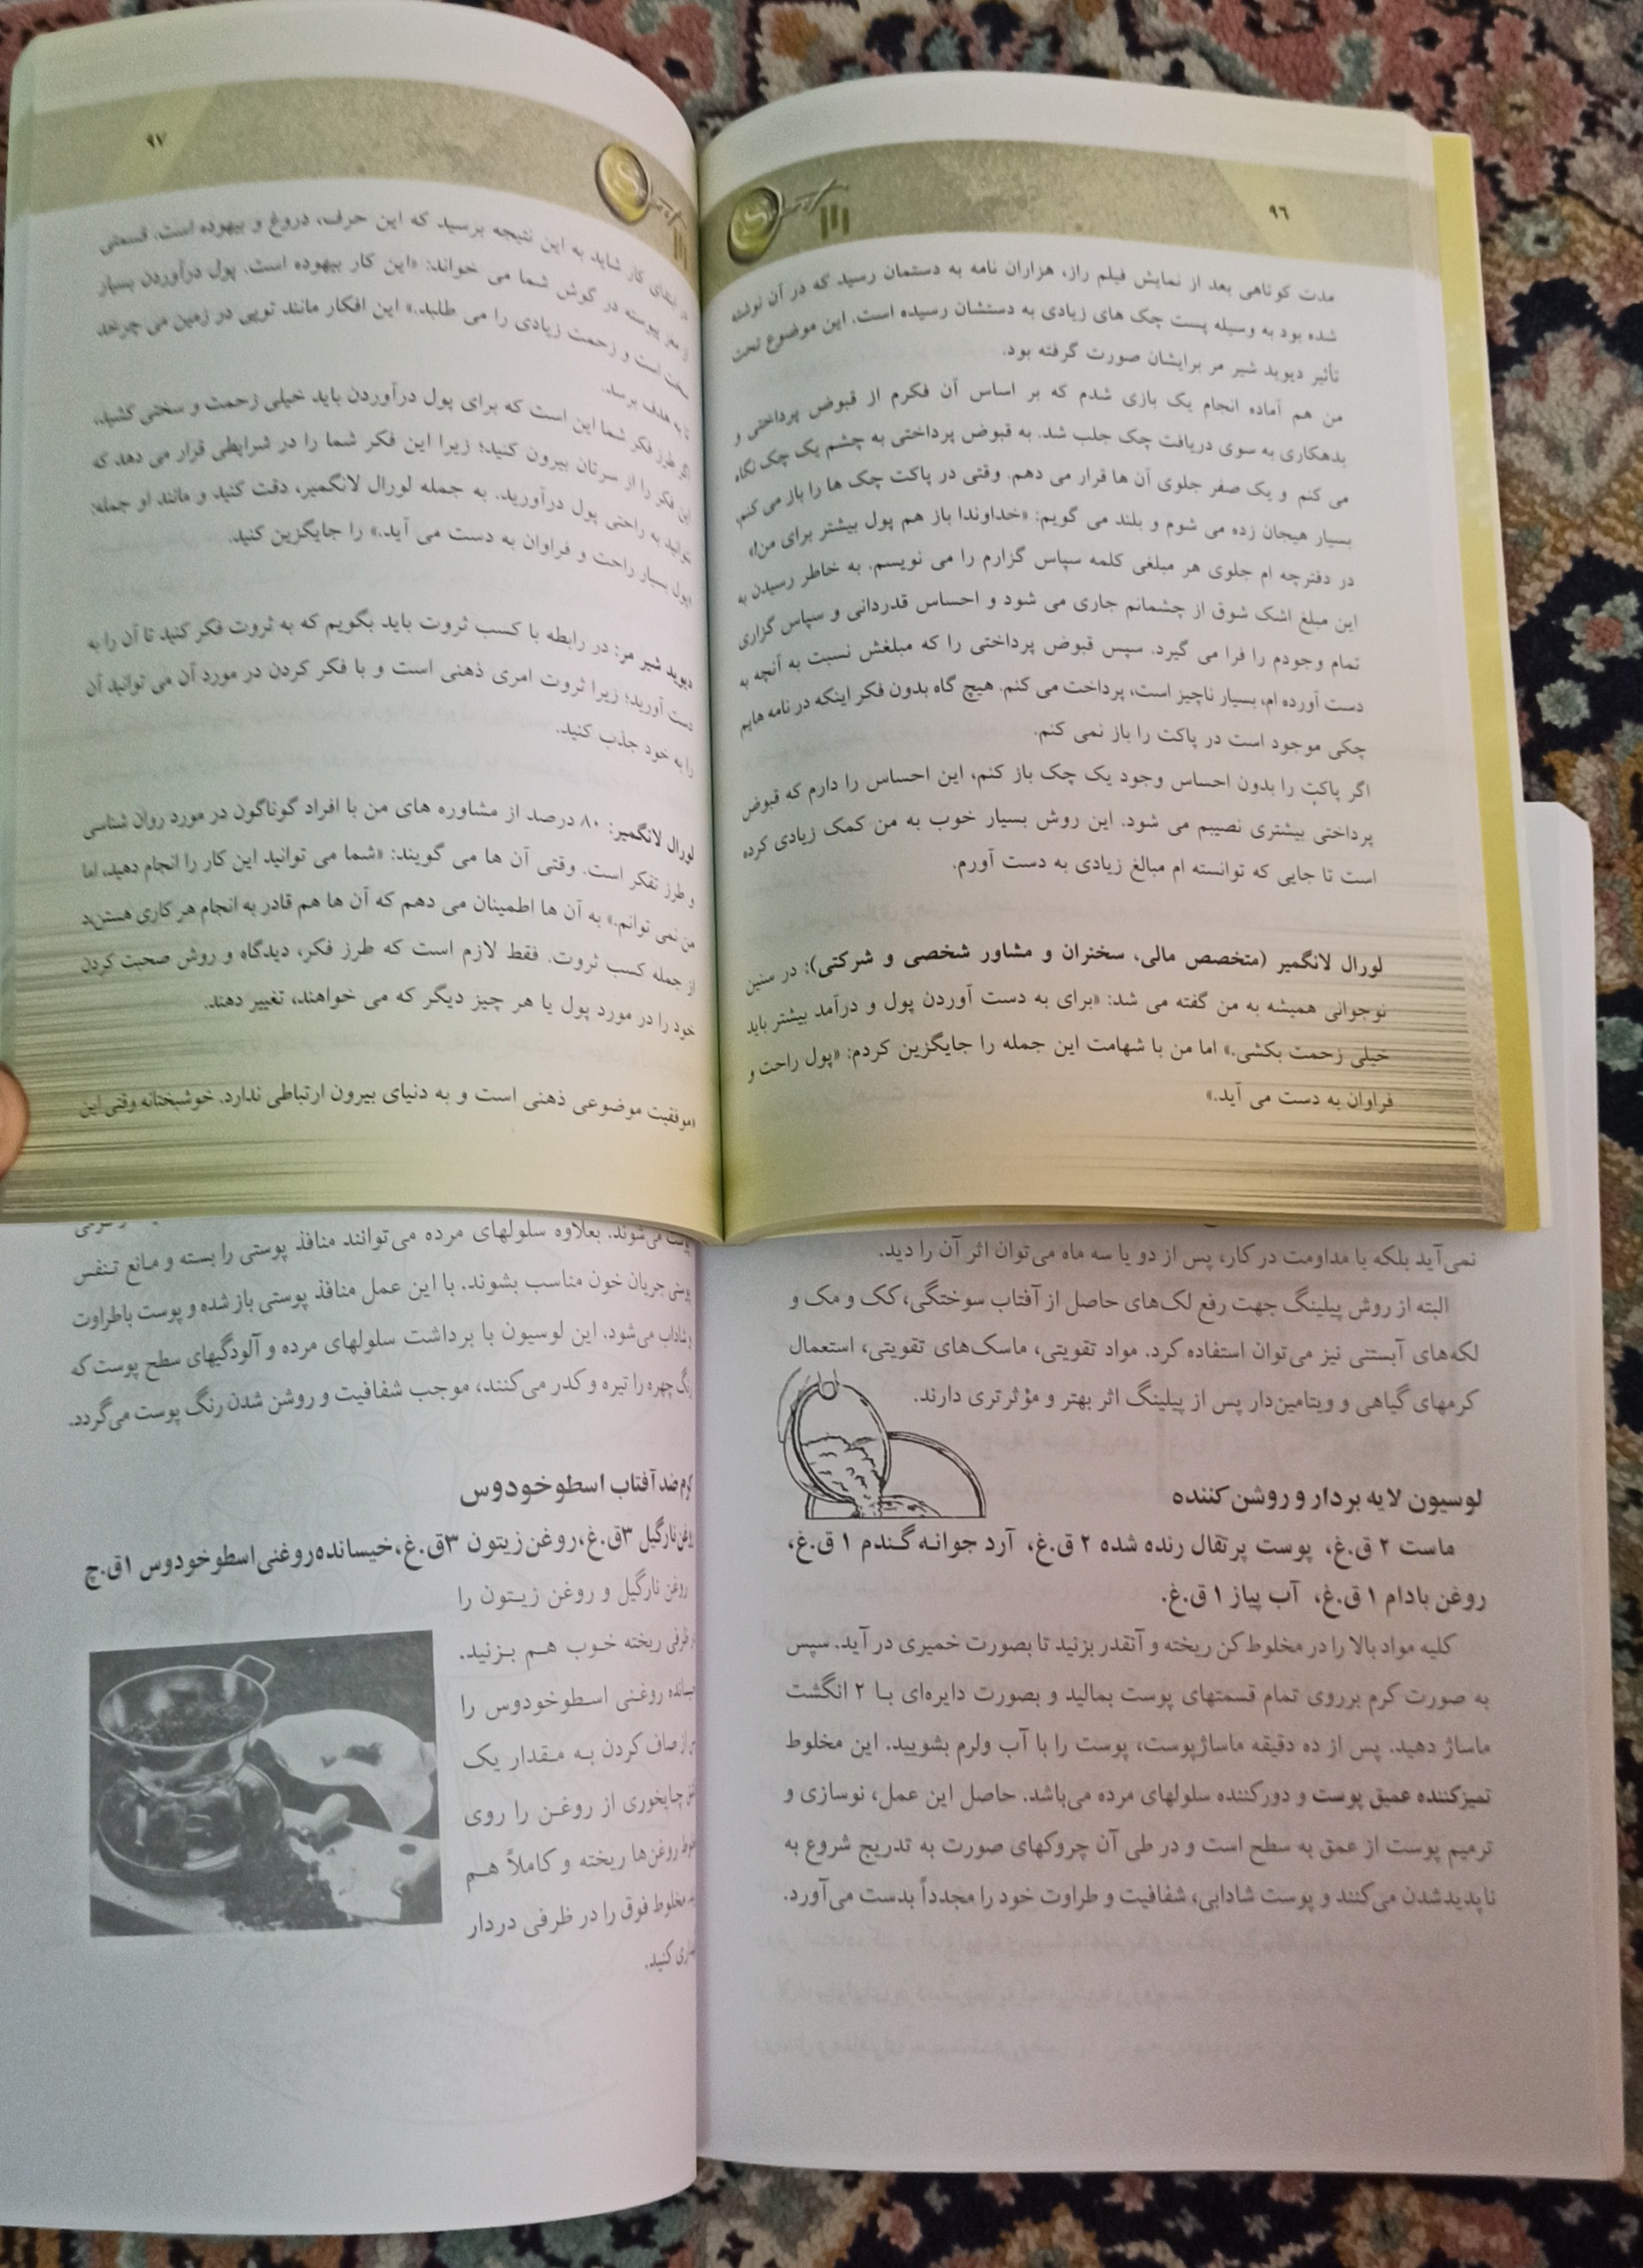 ۹۶
راز
مدت کوتاهی بعد از نمایش فیلم راز، هزاران نامه به دستمان رسید که در آن نوشته
شده بود به وسیله پست چک های زیادی به دستشان رسیده است. این موضوع تحت
تأثیر دیوید شیر مر برایشان صورت گرفته بود.
من هم آماده انجام یک بازی شدم که بر اساس آن فکرم از قبوض پرداختی و
بدهکاری به سوی دریافت چک جلب شد. به قبوض پرداختی به چشم یک چک نگاه
می کنم و یک صفر جلوی آن ها قرار می دهم. وقتی در پاکت چک ها را باز می کنم،
بسیار هیجان زده می شوم و بلند می گویم: «خداوندا باز هم پول بیشتر برای من!»
در دفترچه ام جلوی هر مبلغی کلمه سپاس گزارم را می نویسم. به خاطر رسیدن به
این مبلغ اشک شوق از چشمانم جاری می شود و احساس قدردانی و سپاس گزاری
تمام وجودم را فرا می گیرد. سپس قبوض پرداختی را که مبلغش نسبت به آنچه به
دست آورده ام، بسیار ناچیز است، پرداخت می کنم. هیچ گاه بدون فکر اینکه در نامه هایم
چکی موجود است در پاکت را باز نمی کنم.
اگر پاکت را بدون احساس وجود یک چک باز کنم، این احساس را دارم که قبوض
پرداختی بیشتری نصیبم می شود. این روش بسیار خوب به من کمک زیادی کرده
است تا جایی که توانسته ام مبالغ زیادی به دست آورم.
لورال لانگمیر (متخصص مالی، سخنران و مشاور شخصی و شرکتی): در سنین
نوجوانی همیشه به من گفته می شد: «برای به دست آوردن پول و درآمد بیشتر باید
خیلی زحمت بکشی.» اما من با شهامت این جمله را جایگزین کردم: «پول راحت و
فراوان به دست می آید.»
۹۷
راز
در ابتدای کار شاید به این نتیجه برسید که این حرف، دروغ و بیهوده است. قسمتی
از مغز پیوسته در گوش شما می خواند: «این کار بیهوده است. پول درآوردن بسیار
سخت است و زحمت زیادی را می طلبد.» این افکار مانند توپی در زمین می چرخد
تا به هدف برسد.
اگر طرز فکر شما این است که برای پول درآوردن باید خیلی زحمت و سختی کشید،
این فکر را از سرتان بیرون کنید؛ زیرا این فکر شما را در شرایطی قرار می دهد که
نتوانید به راحتی پول درآورید. به جمله لورال لانگمیر، دقت کنید و مانند او جمله:
«پول بسیار راحت و فراوان به دست می آید.» را جایگزین کنید.
دیوید شیر مر: در رابطه با کسب ثروت باید بگویم که به ثروت فکر کنید تا آن را به
دست آورید؛ زیرا ثروت امری ذهنی است و با فکر کردن در مورد آن می توانید آن
را به خود جذب کنید.
لورال لانگمیر: ۸۰ درصد از مشاوره های من با افراد گوناگون در مورد روان شناسی
و طرز تفکر است. وقتی آن ها می گویند: «شما می توانید این کار را انجام دهید، اما
من نمی توانم.» به آن ها اطمینان می دهم که آن ها هم قادر به انجام هر کاری هستند
از جمله کسب ثروت. فقط لازم است که طرز فکر، دیدگاه و روش صحبت کردن
خود را در مورد پول یا هر چیز دیگر که می خواهند، تغییر دهند.
«موفقیت موضوعی ذهنی است و به دنیای بیرون ارتباطی ندارد. خوشبختانه وقتی این
نمی‌آید بلکه با مداومت در کار، پس از دو یا سه ماه می‌توان اثر آن را دید.
البته از روش پیلینگ جهت رفع لک‌های حاصل از آفتاب سوختگی، کک و مک و
لکه‌های آبستنی نیز می‌توان استفاده کرد. مواد تقویتی، ماسک‌های تقویتی، استعمال
کرمهای گیاهی و ویتامین‌دار پس از پیلینگ اثر بهتر و مؤثرتری دارند.
لوسیون لایه بردار و روشن‌کننده
ماست ۲ ق.غ، پوست پرتقال رنده شده ۲ ق.غ، آرد جوانه گندم ۱ ق.غ،
روغن بادام ۱ ق.غ، آب پیاز ۱ ق.غ.
کلیه مواد بالا را در مخلوط کن ریخته و آنقدر بزنید تا بصورت خمیری در آید. سپس
به صورت کرم برروی تمام قسمتهای پوست بمالید و بصورت دایره‌ای با ۲ انگشت
ماساژ دهید. پس از ده دقیقه ماساژ پوست، پوست را با آب ولرم بشویید. این مخلوط
تمیزکننده عمیق پوست و دورکننده سلولهای مرده می‌باشد. حاصل این عمل، نوسازی و
ترمیم پوست از عمق به سطح است و در طی آن چروکهای صورت به تدریج شروع به
ناپدیدشدن می‌کنند و پوست شادابی، شفافیت و طراوت خود را مجدداً بدست می‌آورد.
می‌شوند. بعلاوه سلولهای مرده می‌توانند منافذ پوستی را بسته و مانع تنفس
جریان خون مناسب بشوند. با این عمل منافذ پوستی باز شده و پوست باطراوت
و شاداب می‌شود. این لوسیون با برداشت سلولهای مرده و آلودگیهای سطح پوست که
رنگ چهره را تیره و کدر می‌کنند، موجب شفافیت و روشن شدن رنگ پوست می‌گردد.
کرم ضد آفتاب اسطوخودوس
روغن نارگیل ۳ق.غ، روغن زیتون ۳ق.غ، خیسانده روغنی اسطوخودوس ۱ق.چ
روغن نارگیل و روغن زیتون را
ظرفی ریخته خوب هم بزنید.
روغنی اسطوخودوس را
از صاف کردن به مقدار یک
چایخوری از روغن را روی
روغن‌ها ریخته و کاملاً هم
مخلوط فوق را در ظرفی دردار
کنید.